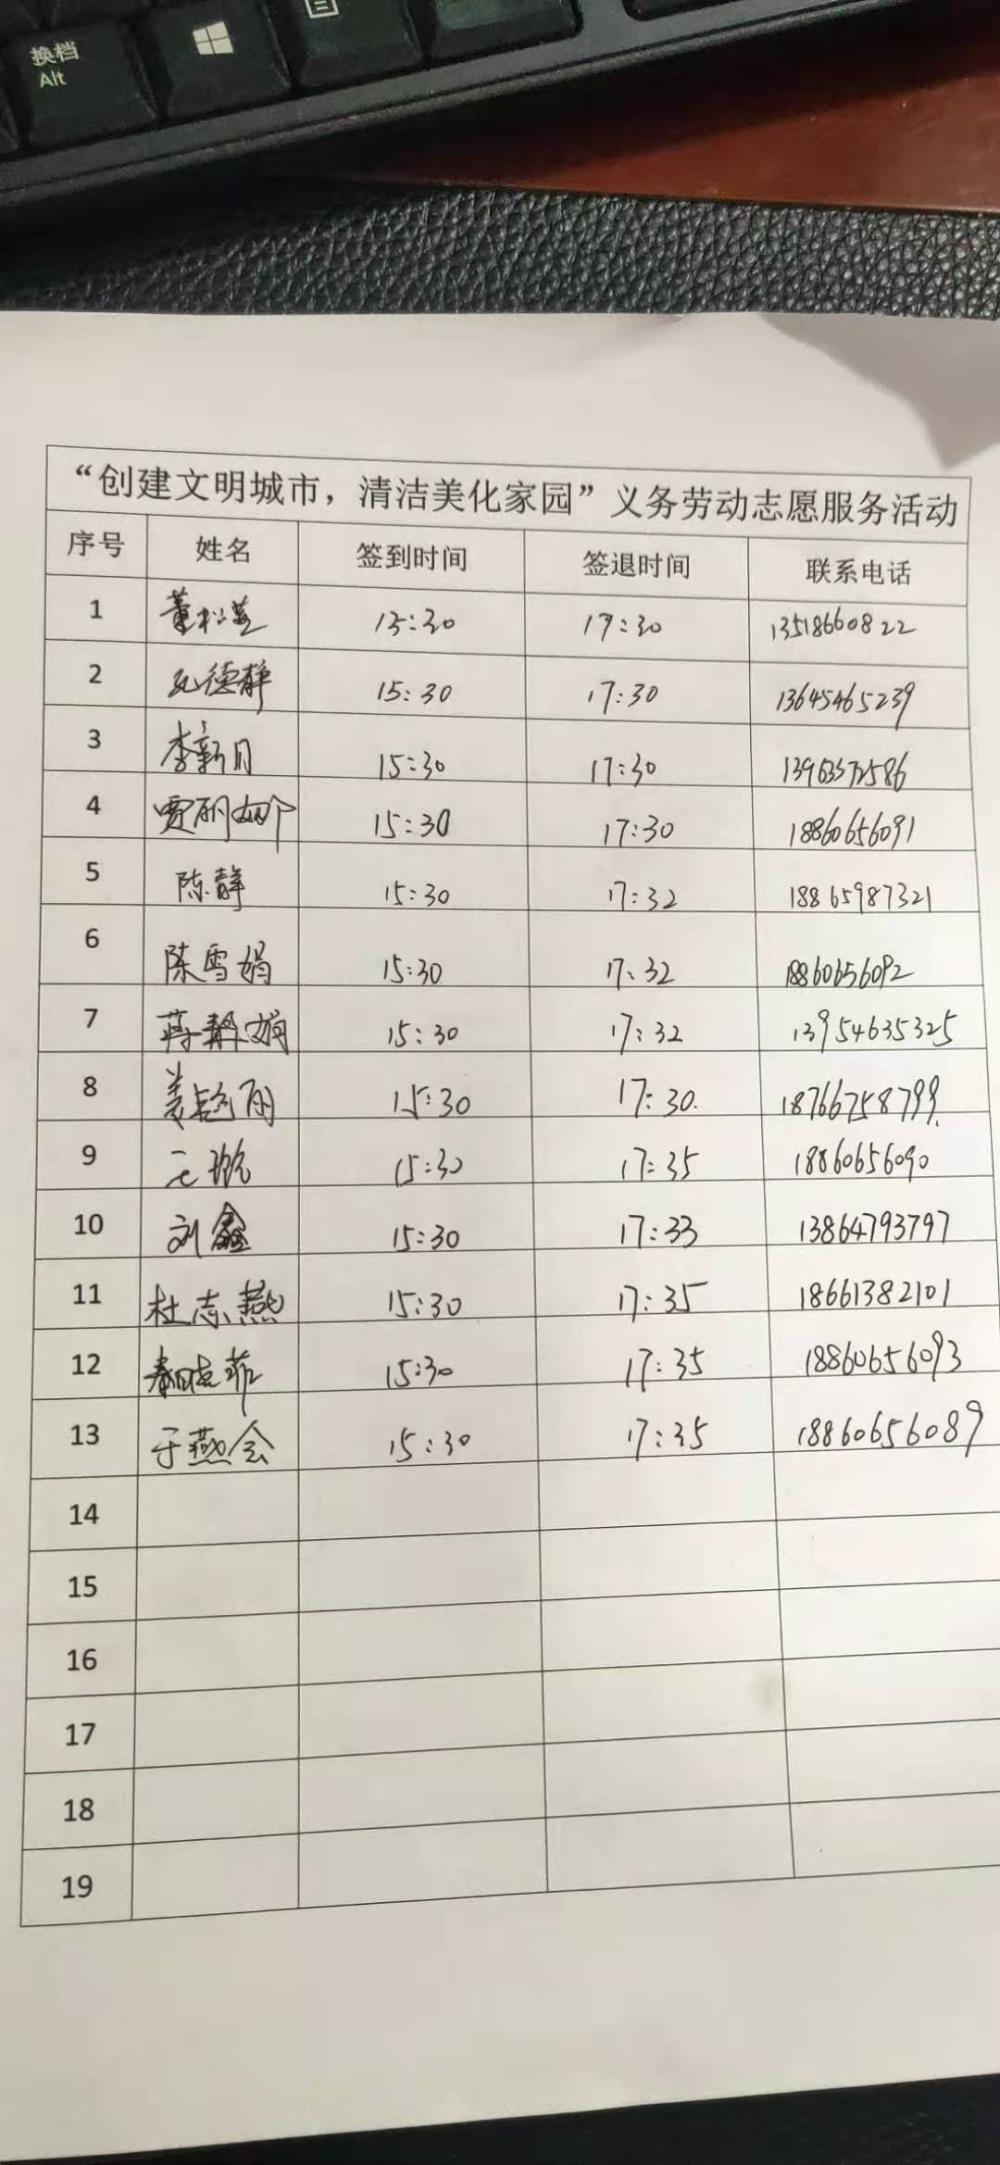 换档
Alt
“创建文明城市，清洁美化家园”义务劳动志愿服务活动
序号 姓名 签到时间 签退时间 联系电话
1 董松芝 15:30 17:30 13518660822
2 德静 15:30 17:30 13645465239
3 李新月 15:30 17:30 13963372586
4 贾丽 15:30 17:30 18860656091
5 陈静 15:30 17:32 18865987321
6 陈雪娟 15:30 17:32 18860656092
7 蒋静娴 15:30 17:32 13954635325
8 姜 丽 15:30 17:30. 18766758799
9 15:30 17:35 18860656090
10 刘鑫 15:30 17:33 13864793797
11 杜志燕 15:30 17:35 18661382101
12 秦晓菲 15:30 17:35 18860656093
13 于燕会 15:30 17:35 18860656089
14
15
16
17
18
19